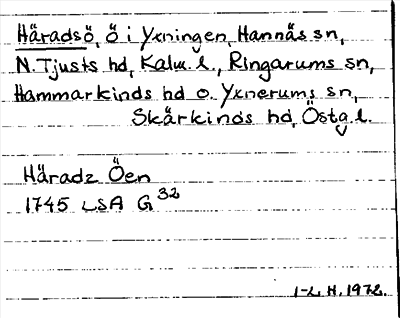 Häradsö, ö i Yxningen, Hannäs sn,
N. Tjusts hd, Kalm. l., Ringarums sn,
Hammarkinds hd o. Yxnerums sn,
Skärkinds hd, Östg. l.
Häradz Öen
1745 LSA G 32
I-L H. 1972